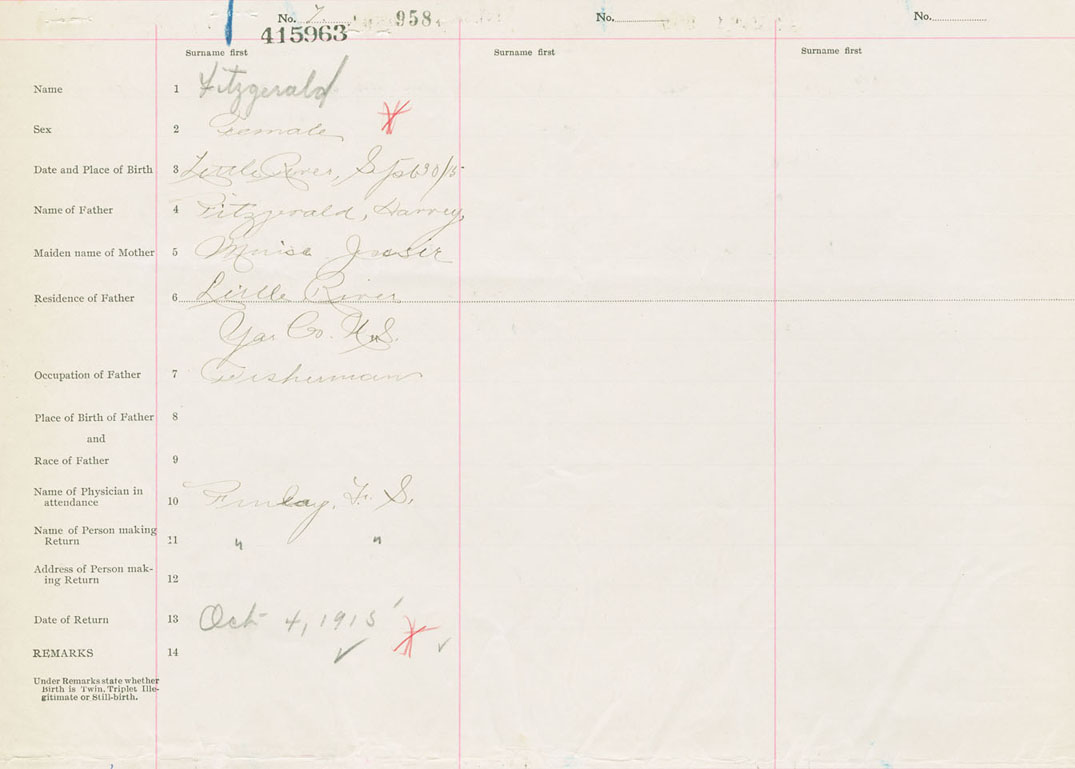 No. 7 958. No. No.
415963
Surname first Surname first Surname first
Name 1 Fitzgerald
Sex 2 Female
Date and Place of Birth 3 Little River, Sept 30/15
Name of Father 4 Fitzgerald, Harvey
Maiden name of Mother 5
Residence of Father 6 Little River
Yar Co. N.S.
Occupation of Father 7 Fisherman
Place of Birth of Father 8
and
Race of Father 9
Name of Physician in
attendance 10 Finlay, F. S.
Name of Person making
Return 11 " "
Address of Person mak-
ing Return 12
Date of Return 13 Oct 4, 1915
REMARKS 14
Under Remarks state whether
Birth is Twin, Triplet Ille-
gitimate or Still-birth.